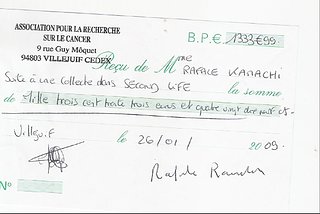 ASSOCIATION POUR LA RECHERCHE
SUR LE CANCER
9 rue Guy Môquet
94803 VILLEJUIF CEDEX
B.P.€ 1333€99
Reçu de Mme RAFALE KAMACHI
Suite à une collecte dans SECOND LIFE la somme
de Mille trois cent trente trois euros et quatre vingt dix neuf cts.
Villejuif le 26/01/ 2009.
No